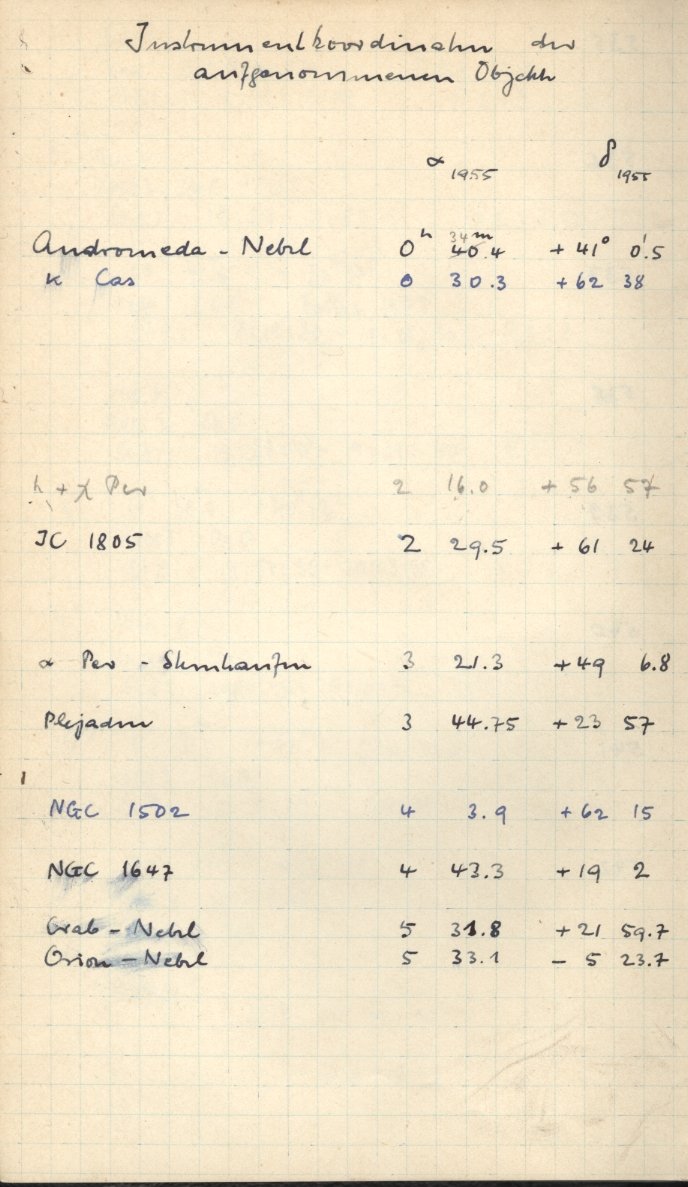 Instrumentkoordinaten der
aufgenommenen Objekte
α 1955 δ 1955
34 m
Andromeda - Nebel 0 h 40.4 + 41° 0.'5
κ Cas 0 30.3 + 62 38
h + χ Per 2 16.0 + 56 57
IC 1805 2 29.5 + 61 24
α Per - Sternhaufen 3 21.3 + 49 6.8
Plejaden 3 44.75 + 23 57
NGC 1502 4 3.9 + 62 15
NGC 1647 4 43.3 + 19 2
Crab - Nebel 5 31.8 + 21 59.7
Orion - Nebel 5 33.1 - 5 23.7